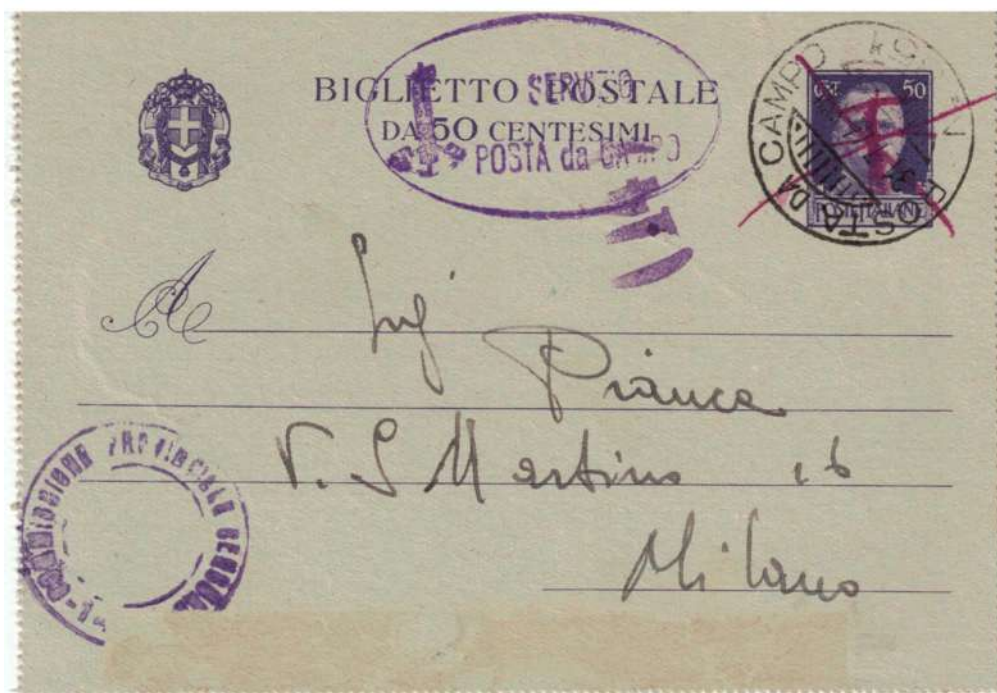 BIGLIETTO POSTALE
DA 50 CENTESIMI
SERVIZIO
POSTA da CAMPO
POSTA DA CAMPO
50
POSTE ITALIANE
A
Ing
Pianca
V. S Martino 16
Milano
COMMISSIONE PROVINCIALE